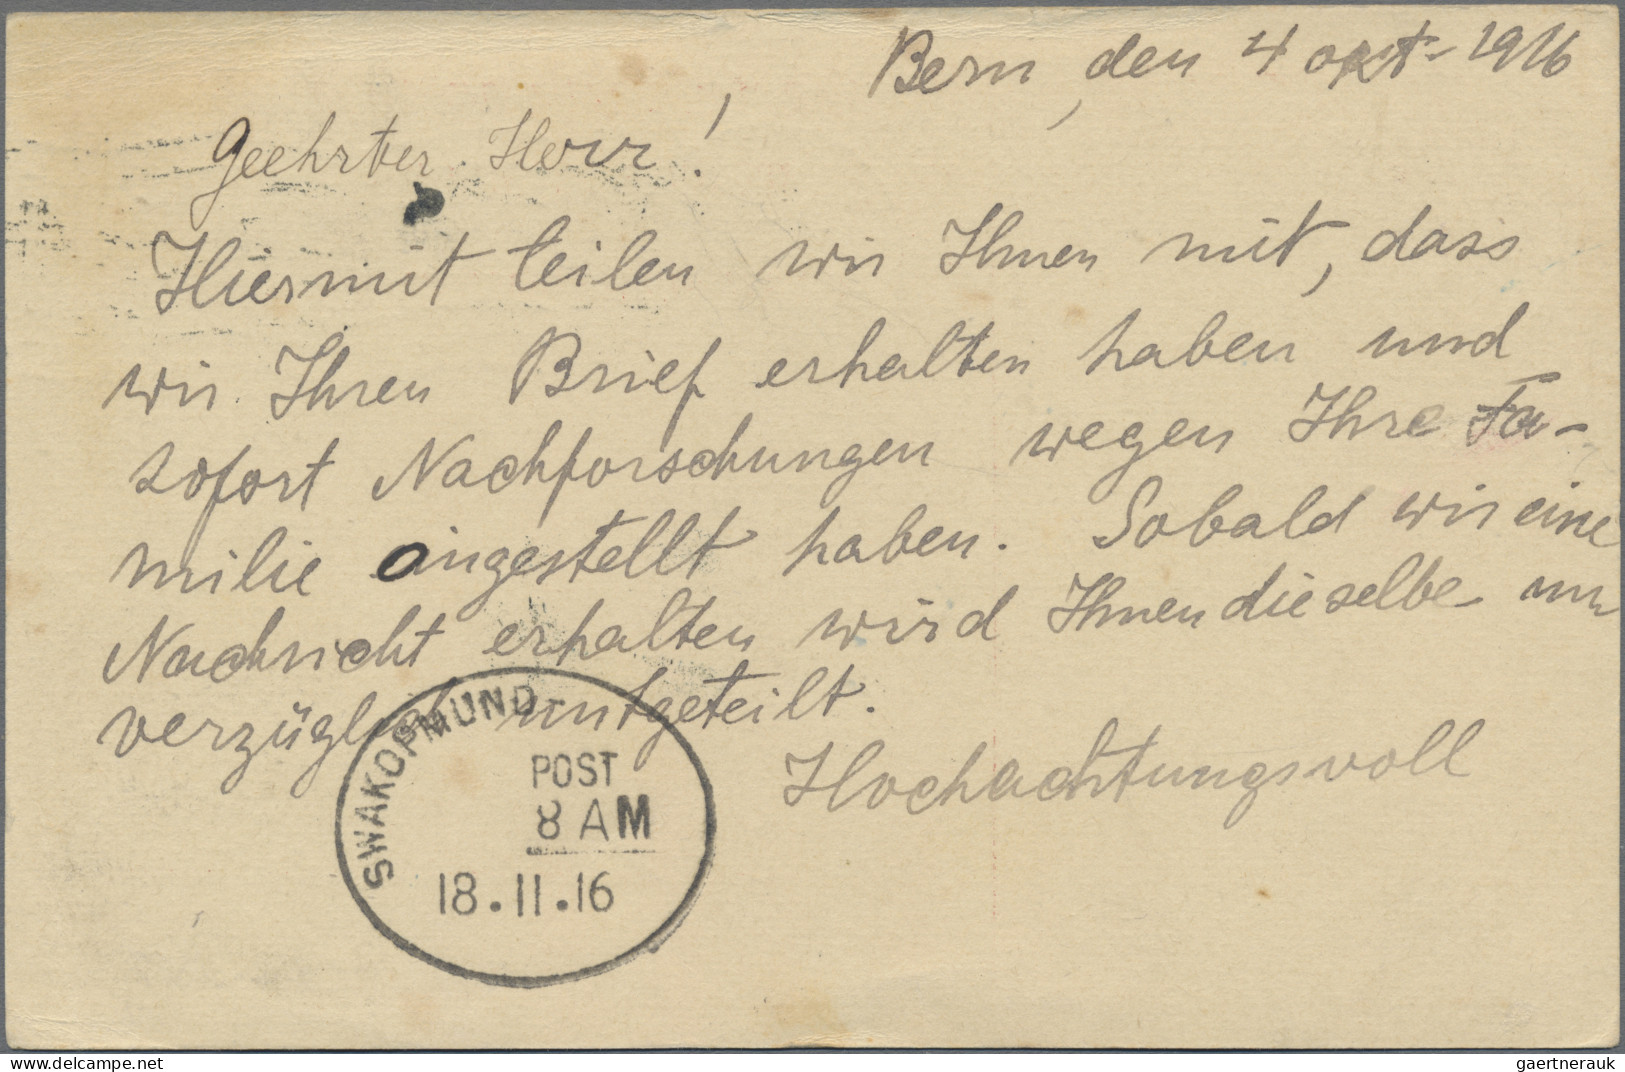 Bern, den 4 okt- 1916
Geehrter Herr!
Hiermit teilen wir Ihnen mit, dass
wir Ihren Brief erhalten haben und
sofort Nachforschungen wegen Ihre Fa-
milie angestellt haben. Sobald wir eine
Nachricht erhalten wird Ihnen dieselbe un
verzüglich mitgeteilt.
Hochachtungsvoll
SWAKOPMUND
POST
8 AM
18.11.16
www.delcampe.net
gaertnerauk